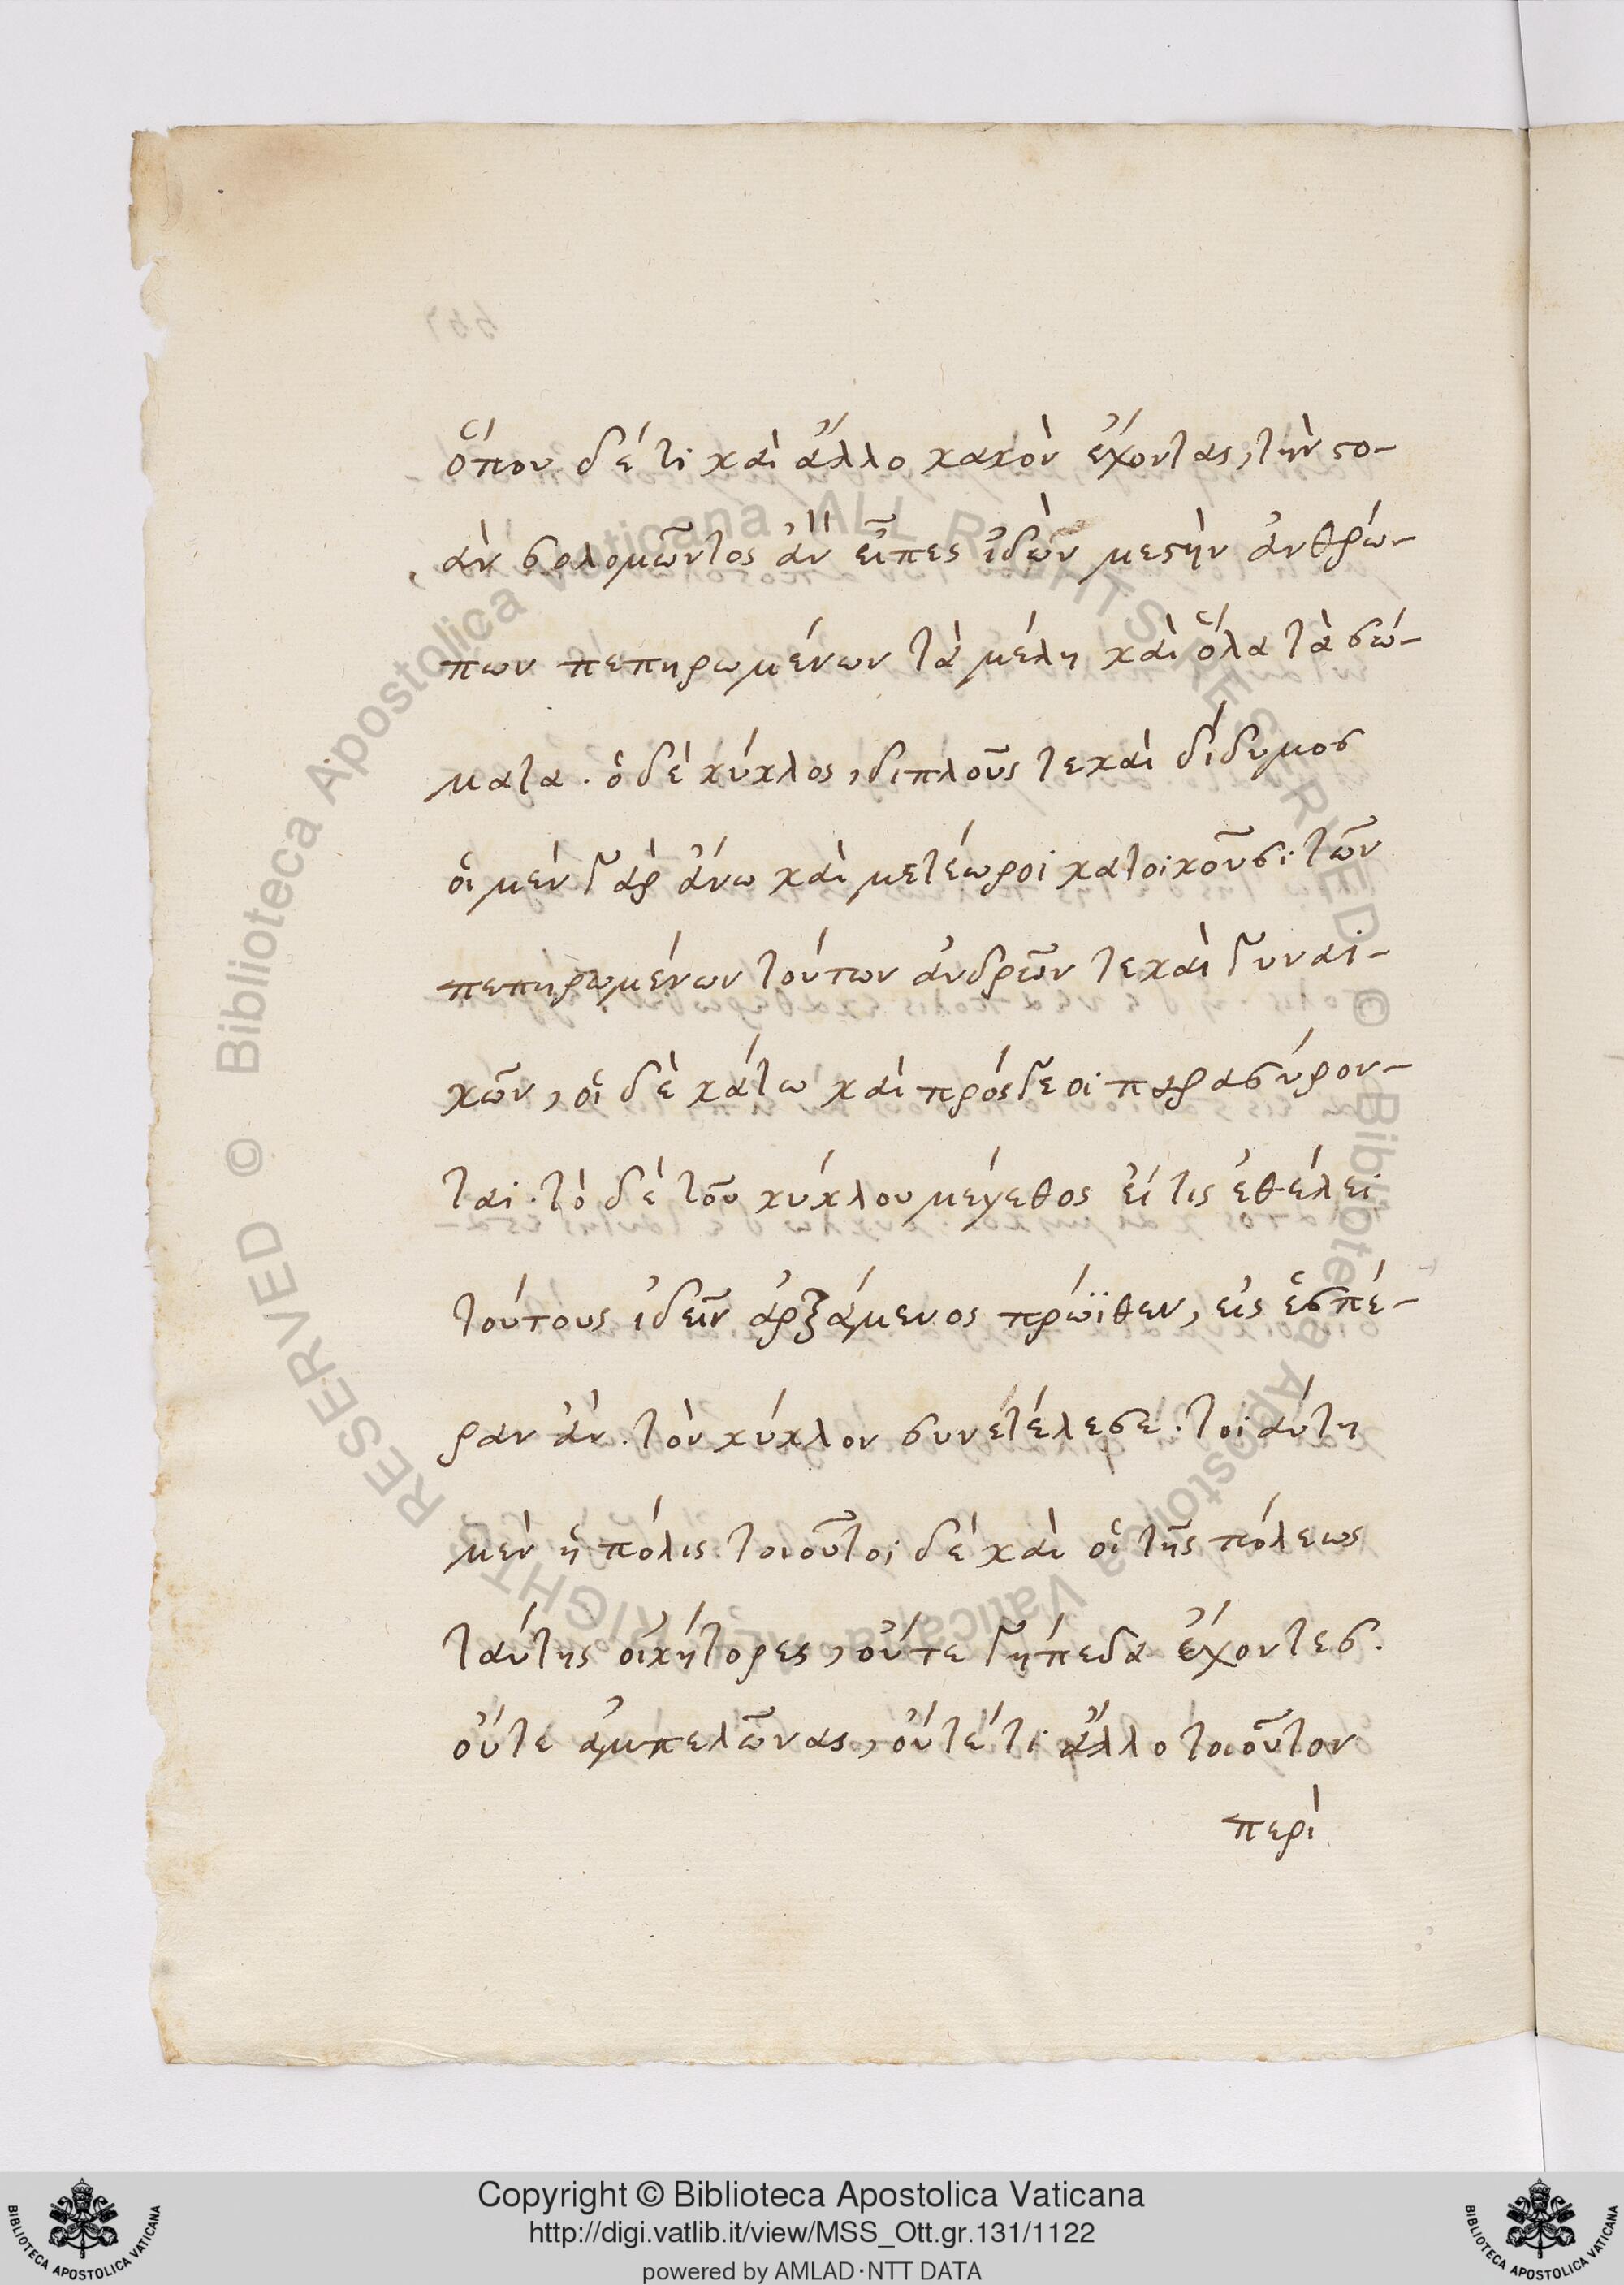 ὅπου δέ τι καὶ ἄλλο κακὸν ἔχοντας, τὴν στο-
ὰν σολομῶντος ἂν εἶπες ἰδὼν μεστὴν ἀνθρώ-
πων πεπηρωμένων τὰ μέλη καὶ ὅλα τὰ σώ-
ματα. ὁ δὲ κύκλος, διπλοῦς τε καὶ δίδυμος
οἱ μὲν γὰρ ἄνω καὶ μετέωροι κατοικοῦσι τῶν
πεπηρωμένων τούτων ἀνδρῶν τε καὶ γυναι-
κῶν, οἱ δὲ κάτω καὶ πρόσγεοι παρασύρον-
ται. τὸ δὲ τοῦ κύκλου μέγεθος εἴ τις ἐθέλει
τούτους ἰδεῖν ἀρξάμενος πρώϊθεν, εἰς ἑσπέ-
ραν ἂν. τὸν κύκλον συνετέλεσε. τοιαύτη
μὲν ἡ πόλις τοιοῦτοι δὲ καὶ οἱ τῆς πόλεως
ταύτης οἰκήτορες, οὔτε γήπεδα ἔχοντες.
οὔτε ἀμπελῶνας, οὔτέ τι ἄλλο τοιοῦτον
περὶ
© Biblioteca Apostolica Vaticana ALL RIGHTS RESERVED © Biblioteca Apostolica Vaticana ALL RIGHTS RESERVED
Copyright © Biblioteca Apostolica Vaticana
http://digi.vatlib.it/view/MSS_Ott.gr.131/1122
powered by AMLAD·NTT DATA
BIBLIOTECA APOSTOLICA VATICANA
BIBLIOTECA APOSTOLICA VATICANA